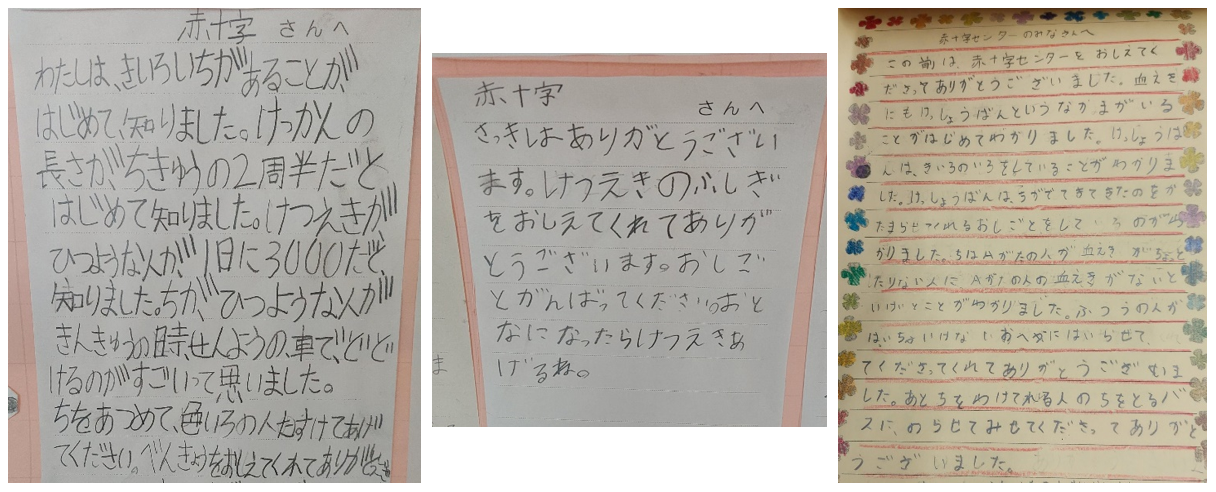 赤十字 さんへ
わたしは、きいろいちがあることが、
はじめて、知りました。けっかんの
長さが、ちきゅうの2周半だと
はじめて知りました。けつえきが
ひつような人が、1日に3000だと、
知りました。ちが、ひつような人が
きんきゅうの時、せんようの、車で、とど
けるのがすごいって思いました。
ちをあつめて、いろの人たすけてあげ
てください。べんきょうをおしえてくれてありが
赤十字
さんへ
さっきはありがとうござい
ます。けつえきのふしぎ
をおしえてくれてありが
とうございます。おしご
とがんばってください。おと
なになったらけつえきあ
げるね。
赤十字センターのみなさんへ
この前は、赤十字センターを おしえてく
ださってありがとうございました。血えき
にもけっしょうばんというなかまがいる
ことがはじめてわかりました。けっしょうば
んは、きいろのいろをしていることがわかりま
した。けっしょうばんは、ちがでてきてきたのをか
たまらせてくれるおしごとをしているのがわ
かりました。ちはAがたの人が血えきが
たりない人にAがたの人の血えきがないと
いけないことがわかりました。ふつうの人が
はいちゃいけないおへやにはいらせて、
てくださってくれてありがとうございま
した。あとちをわけてくれる人のちをとるバ
スに、のらせてみせてくださってありがと
うございました。